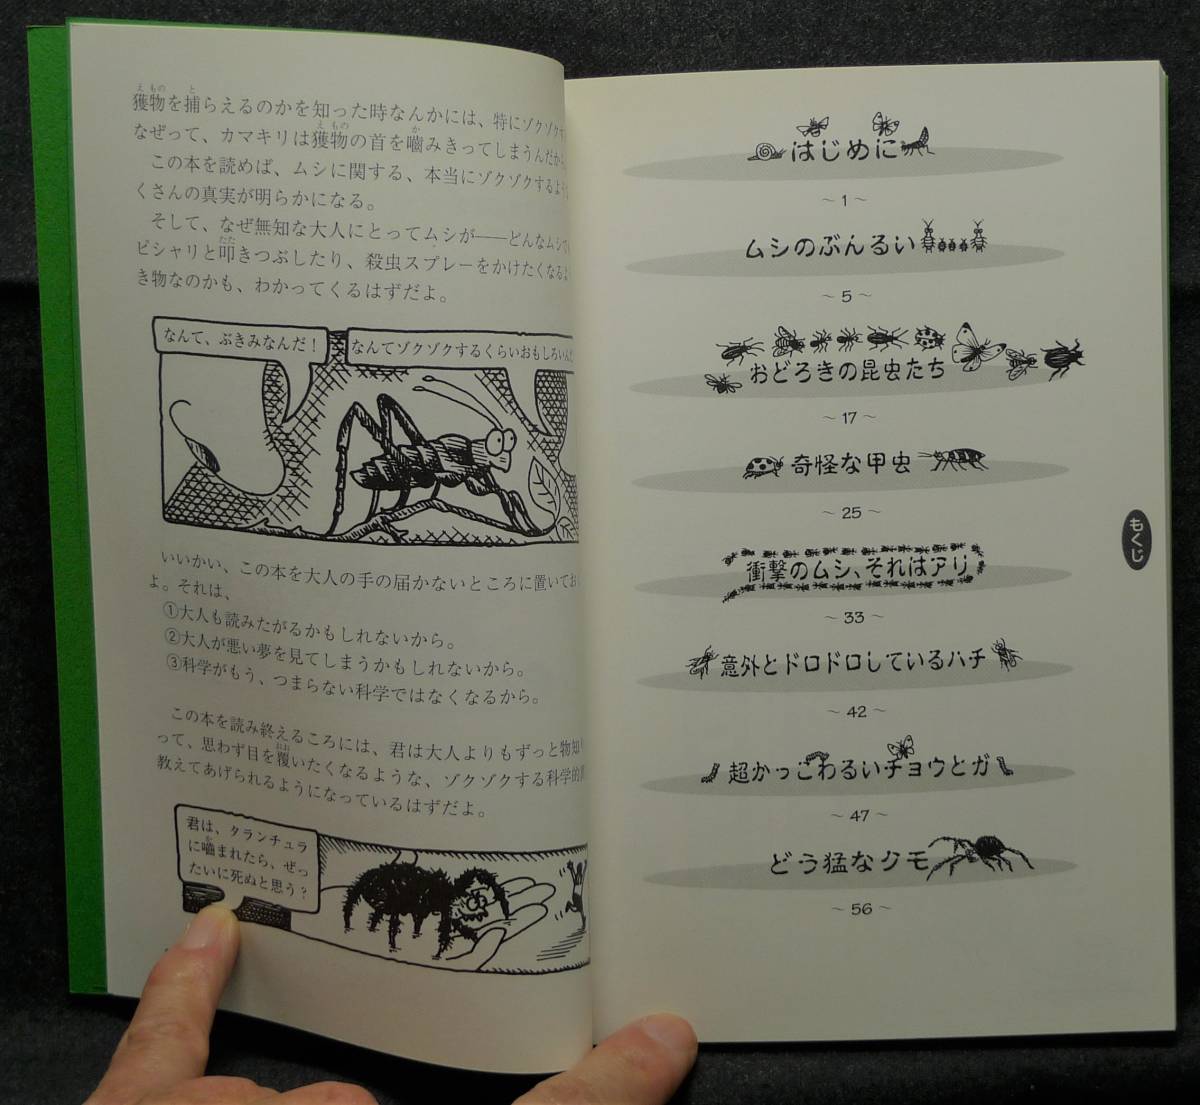 獲物を捕らえるのかを知った時なんかには、特にゾクゾクす
なぜって、カマキリは獲物の首を嚙みきってしまうんだから
この本を読めば、ムシに関する、本当にゾクゾクするような
くさんの真実が明らかになる。
そして、なぜ無知な大人にとってムシが——どんなムシでも
ピシャリと叩きつぶしたり、殺虫スプレーをかけたくなるよ
き物なのかも、わかってくるはずだよ。
なんて、ぶきみなんだ！
なんてゾクゾクするくらいおもしろいんだ
いいかい、この本を大人の手の届かないところに置いてお
よ。それは、
①大人も読みたがるかもしれないから。
②大人が悪い夢を見てしまうかもしれないから。
③科学がもう、つまらない科学ではなくなるから。
この本を読み終えるころには、君は大人よりもずっと物知り
って、思わず目を覆いたくなるような、ゾクゾクする科学的
教えてあげられるようになっているはずだよ。
君は、タランチュラ
に嚙まれたら、ぜっ
たいに死ぬと思う？
はじめに
～1～
ムシのぶんるい
～5～
おどろきの昆虫たち
～17～
奇怪な甲虫
～25～
衝撃のムシ、それはアリ
～33～
意外とドロドロしているハチ
～42～
超かっこわるいチョウとガ
～47～
どう猛なクモ
～56～
もくじ